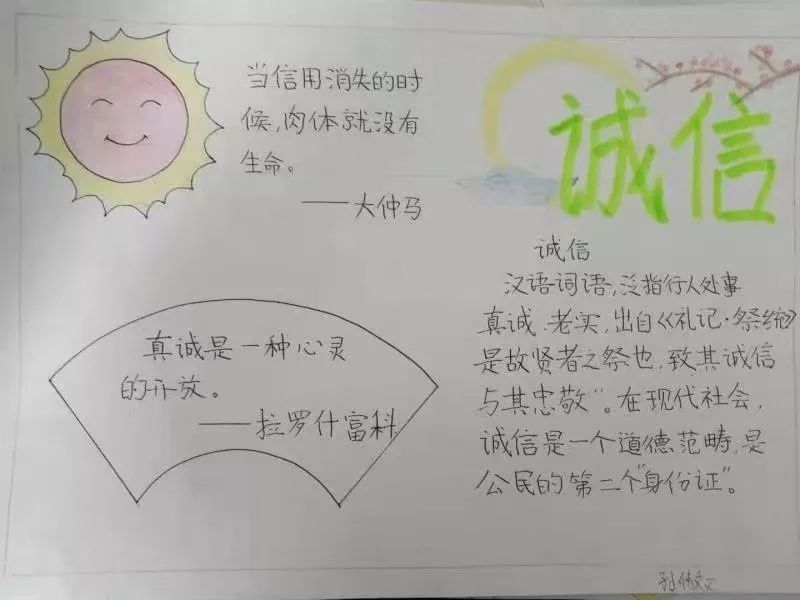 当信用消失的时
候,肉体就没有
生命。
——大仲马
真诚是一种心灵
的开放。
——拉罗什富科
诚信
诚信
汉语词语,泛指行人处事
真诚、老实,出自《礼记·祭统》
是故贤者之祭也,致其诚信
与其忠敬”。在现代社会,
诚信是一个道德范畴,是
公民的第二个“身份证”。